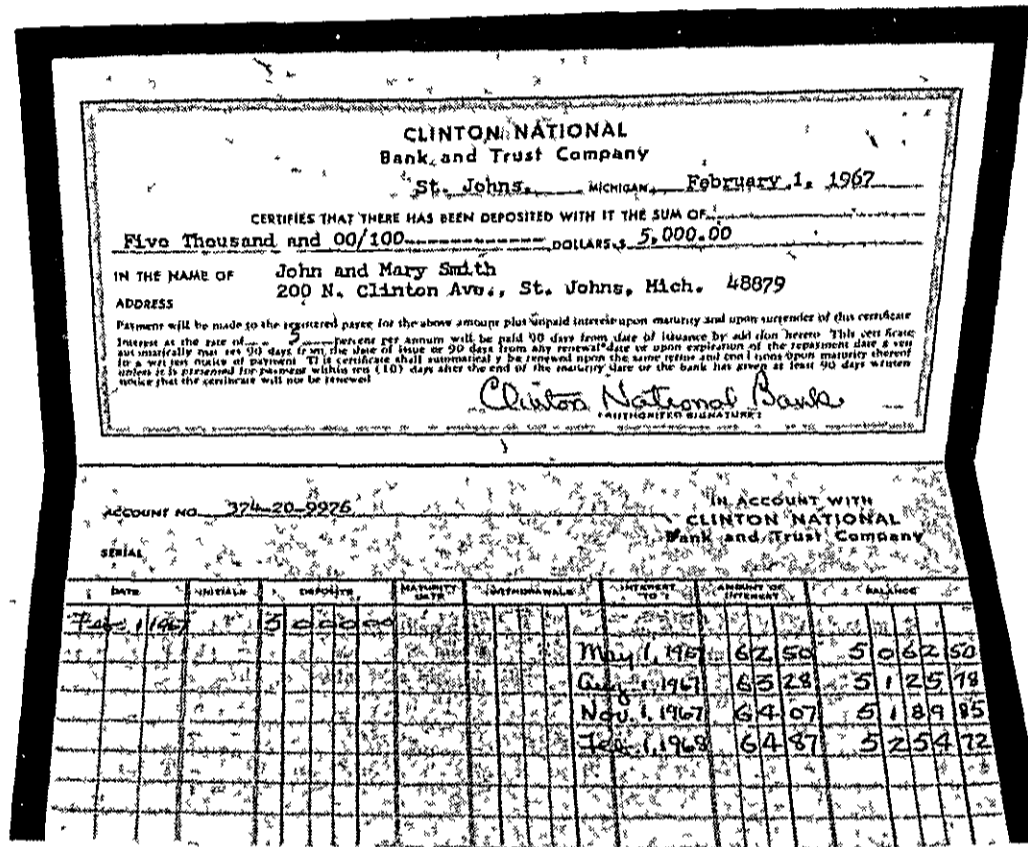 CLINTON NATIONAL
Bank and Trust Company
St. Johns, MICHIGAN, February 1, 1967
CERTIFIES THAT THERE HAS BEEN DEPOSITED WITH IT THE SUM OF
Five Thousand and 00/100------------- DOLLARS $ 5,000.00
IN THE NAME OF John and Mary Smith
ADDRESS 200 N. Clinton Ave., St. Johns, Mich. 48879
Payment will be made to the registered payee for the above amount plus unpaid interest upon maturity and upon surrender of this certificate
Interest at the rate of 5 percent per annum will be paid 90 days from date of issuance by addition hereto. This certificate
automatically matures 90 days from the date of issue or 90 days from any renewal date or upon expiration of the repayment date given
in a written notice of payment. This certificate shall automatically be renewed upon the same terms and conditions upon maturity thereof
unless it is presented for payment within ten (10) days after the end of the maturity date or the bank has given at least 90 days written
notice that the certificate will not be renewed
Clinton National Bank
(AUTHORIZED SIGNATURE)
ACCOUNT NO. 374-20-9976
IN ACCOUNT WITH
CLINTON NATIONAL
Bank and Trust Company
SERIAL
DATE INITIALS DEPOSITS MATURITY DATE WITHDRAWALS INTEREST TO AMOUNT OF INTEREST BALANCE
Feb 1 1967 5 000 00
May 1, 1967 62 50 5 062 50
Aug. 1, 1967 63 28 5 125 78
Nov. 1, 1967 64 07 5 189 85
Feb. 1, 1968 64 87 5 254 72